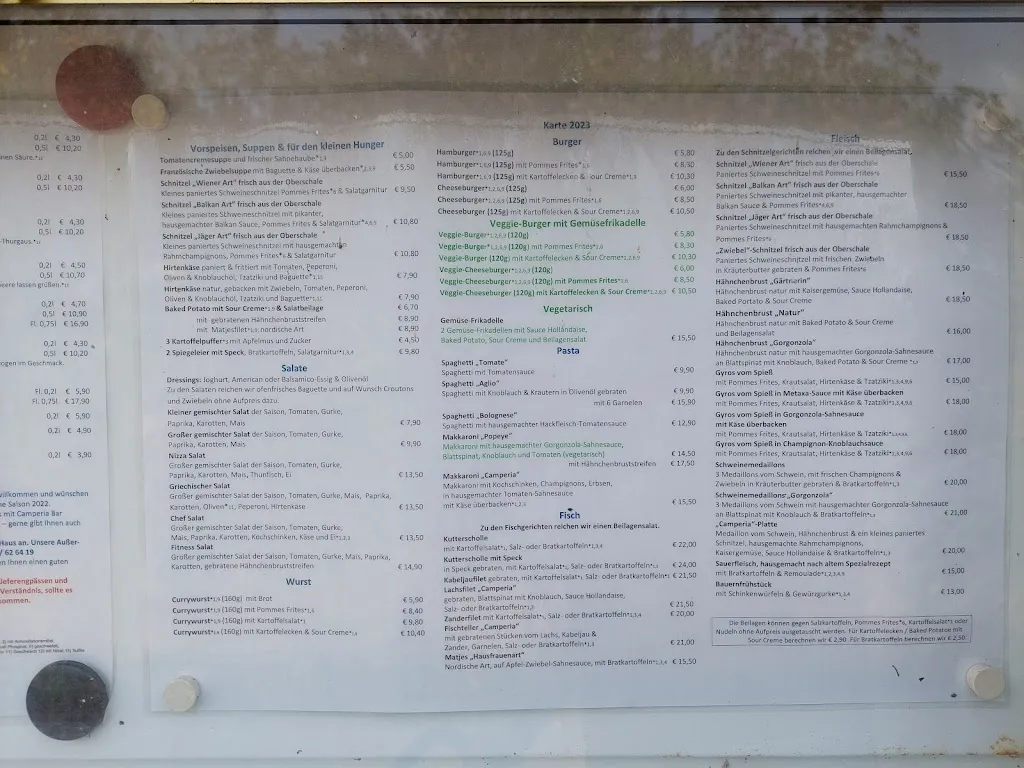 0,2l € 4,30
0,5l € 10,20
nen Säure.
0,2l € 4,30
0,5l € 10,20
0,2l € 4,30
0,5l € 10,20
Thurgaus.
0,2l € 4,50
0,5l € 10,70
0,2l € 4,70
0,5l € 10,90
Fl. 0,75l € 16,90
0,2l € 4,30
0,5l € 10,20
ogen im Geschmack.
Fl. 0,2l € 5,90
Fl. 0,75l € 17,90
0,2l € 5,90
0,2l € 4,90
0,2l € 3,90
willkommen und wünschen
Saison 2022.
mit Camperia Bar
– gerne gibt Ihnen auch
Haus an. Unsere Außer-
/ 62 64 19
en Ihnen einen guten
ieferengpässen und
Verständnis, sollte es
kommen.
Vorspeisen, Suppen & für den kleinen Hunger
Tomatencremesuppe und frischer Sahnehaube € 5,00
Französische Zwiebelsuppe mit Baguette & Käse überbacken € 5,50
Schnitzel „Wiener Art“ frisch aus der Oberschale
Kleines paniertes Schweineschnitzel Pommes Frites & Salatgarnitur € 9,50
Schnitzel „Balkan Art“ frisch aus der Oberschale
Kleines paniertes Schweineschnitzel mit pikanter,
hausgemachter Balkan Sauce, Pommes Frites & Salatgarnitur € 10,80
Schnitzel „Jäger Art“ frisch aus der Oberschale
Kleines paniertes Schweineschnitzel mit hausgemachter
Rahmchampignons, Pommes Frites & Salatgarnitur € 10,80
Hirtenkäse paniert & frittiert mit Tomaten, Peperoni,
Oliven & Knoblauchöl, Tzatziki und Baguette € 7,90
Hirtenkäse natur, gebacken mit Zwiebeln, Tomaten, Peperoni,
Oliven & Knoblauchöl, Tzatziki und Baguette € 7,90
Baked Potato mit Sour Creme & Salatbeilage € 6,70
mit gebratenen Hähnchenbruststreifen € 8,90
mit Matjesfilet, nordische Art € 8,90
3 Kartoffelpuffer mit Apfelmus und Zucker € 4,50
2 Spiegeleier mit Speck, Bratkartoffeln, Salatgarnitur € 9,80
Salate
Dressings: Joghurt, American oder Balsamico-Essig & Olivenöl
Zu den Salaten reichen wir ofenfrisches Baguette und auf Wunsch Croutons
und Zwiebeln ohne Aufpreis dazu.
Kleiner gemischter Salat der Saison, Tomaten, Gurke,
Paprika, Karotten, Mais € 7,90
Großer gemischter Salat der Saison, Tomaten, Gurke,
Paprika, Karotten, Mais € 9,90
Nizza Salat
Großer gemischter Salat der Saison, Tomaten, Gurke,
Paprika, Karotten, Mais, Thunfisch, Ei € 13,50
Griechischer Salat
Großer gemischter Salat der Saison, Tomaten, Gurke, Mais, Paprika,
Karotten, Oliven, Peperoni, Hirtenkäse € 13,50
Chef Salat
Großer gemischter Salat der Saison, Tomaten, Gurke,
Mais, Paprika, Karotten, Kochschinken, Käse und Ei € 13,50
Fitness Salat
Großer gemischter Salat der Saison, Tomaten, Gurke, Mais, Paprika,
Karotten, gebratene Hähnchenbruststreifen € 14,90
Wurst
Currywurst (160g) mit Brot € 5,90
Currywurst (160g) mit Pommes Frites € 8,40
Currywurst (160g) mit Kartoffelsalat € 9,80
Currywurst (160g) mit Kartoffelecken & Sour Creme € 10,40
Karte 2023
Burger
Hamburger (125g) € 5,80
Hamburger (125g) mit Pommes Frites € 8,30
Hamburger (125g) mit Kartoffelecken & Sour Creme € 10,30
Cheeseburger (125g) € 6,00
Cheeseburger (125g) mit Pommes Frites € 8,50
Cheeseburger (125g) mit Kartoffelecken & Sour Creme € 10,50
Veggie-Burger mit Gemüsefrikadelle
Veggie-Burger (120g) € 5,80
Veggie-Burger (120g) mit Pommes Frites € 8,30
Veggie-Burger (120g) mit Kartoffelecken & Sour Creme € 10,30
Veggie-Cheeseburger (120g) € 6,00
Veggie-Cheeseburger (120g) mit Pommes Frites € 8,50
Veggie-Cheeseburger (120g) mit Kartoffelecken & Sour Creme € 10,50
Vegetarisch
Gemüse-Frikadelle
2 Gemüse-Frikadellen mit Sauce Hollandaise,
Baked Potato, Sour Creme und Beilagensalat € 15,50
Pasta
Spaghetti „Tomate“
Spaghetti mit Tomatensauce € 9,90
Spaghetti „Aglio“
Spaghetti mit Knoblauch & Kräutern in Olivenöl gebraten € 9,90
mit 6 Garnelen € 15,90
Spaghetti „Bolognese“
Spaghetti mit hausgemachter Hackfleisch-Tomatensauce € 12,90
Makkaroni „Popeye“
Makkaroni mit hausgemachter Gorgonzola-Sahnesauce,
Blattspinat, Knoblauch und Tomaten (vegetarisch) € 14,50
mit Hähnchenbruststreifen € 17,50
Makkaroni „Camperia“
Makkaroni mit Kochschinken, Champignons, Erbsen,
in hausgemachter Tomaten-Sahnesauce
mit Käse überbacken € 15,50
Fisch
Zu den Fischgerichten reichen wir einen Beilagensalat.
Kutterscholle
mit Kartoffelsalat, Salz- oder Bratkartoffeln € 22,00
Kutterscholle mit Speck
in Speck gebraten, mit Kartoffelsalat, Salz- oder Bratkartoffeln € 24,00
Kabeljaufilet gebraten, mit Kartoffelsalat, Salz- oder Bratkartoffeln € 21,50
Lachsfilet „Camperia“
gebraten, Blattspinat mit Knoblauch, Sauce Hollandaise,
Salz- oder Bratkartoffeln € 21,50
Zanderfilet mit Kartoffelsalat, Salz- oder Bratkartoffeln € 20,00
Fischteller „Camperia“
mit gebratenen Stücken vom Lachs, Kabeljau &
Zander, Garnelen, Salz- oder Bratkartoffeln € 21,00
Matjes „Hausfrauenart“
Nordische Art, auf Apfel-Zwiebel-Sahnesauce, mit Bratkartoffeln € 15,50
Fleisch
Zu den Schnitzelgerichten reichen wir einen Beilagensalat.
Schnitzel „Wiener Art“ frisch aus der Oberschale
Paniertes Schweineschnitzel mit Pommes Frites € 15,50
Schnitzel „Balkan Art“ frisch aus der Oberschale
Paniertes Schweineschnitzel mit pikanter, hausgemachter
Balkan Sauce & Pommes Frites € 18,50
Schnitzel „Jäger Art“ frisch aus der Oberschale
Paniertes Schweineschnitzel mit hausgemachten Rahmchampignons &
Pommes Frites € 18,50
„Zwiebel“-Schnitzel frisch aus der Oberschale
Paniertes Schweineschnitzel mit frischen Zwiebeln
in Kräuterbutter gebraten & Pommes Frites € 18,50
Hähnchenbrust „Gärtnerin“
Hähnchenbrust natur mit Kaisergemüse, Sauce Hollandaise,
Baked Potato & Sour Creme € 18,50
Hähnchenbrust „Natur“
Hähnchenbrust natur mit Baked Potato & Sour Creme
und Beilagensalat € 16,00
Hähnchenbrust „Gorgonzola“
Hähnchenbrust natur mit hausgemachter Gorgonzola-Sahnesauce
an Blattspinat mit Knoblauch, Baked Potato & Sour Creme € 17,00
Gyros vom Spieß
mit Pommes Frites, Krautsalat, Hirtenkäse & Tzatziki € 15,00
Gyros vom Spieß in Metaxa-Sauce mit Käse überbacken
mit Pommes Frites, Krautsalat, Hirtenkäse & Tzatziki € 18,00
Gyros vom Spieß in Gorgonzola-Sahnesauce
mit Käse überbacken
mit Pommes Frites, Krautsalat, Hirtenkäse & Tzatziki € 18,00
Gyros vom Spieß in Champignon-Knoblauchsauce
mit Pommes Frites, Krautsalat, Hirtenkäse & Tzatziki € 18,00
Schweinemedaillons
3 Medaillons vom Schwein, mit frischen Champignons &
Zwiebeln in Kräuterbutter gebraten & Bratkartoffeln € 20,00
Schweinemedaillons „Gorgonzola“
3 Medaillons vom Schwein mit hausgemachter Gorgonzola-Sahnesauce
an Blattspinat mit Knoblauch & Bratkartoffeln € 21,00
„Camperia“-Platte
Medaillon vom Schwein, Hähnchenbrust & ein kleines paniertes
Schnitzel, hausgemachte Rahmchampignons,
Kaisergemüse, Sauce Hollandaise & Bratkartoffeln € 20,00
Sauerfleisch, hausgemacht nach altem Spezialrezept
mit Bratkartoffeln & Remoulade € 15,00
Bauernfrühstück
mit Schinkenwürfeln & Gewürzgurke € 13,00
Die Beilagen können gegen Salzkartoffeln, Pommes Frites, Kartoffelsalat oder
Nudeln ohne Aufpreis ausgetauscht werden. Für Kartoffelecken / Baked Potatoe mit
Sour Creme berechnen wir € 2,90. Für Bratkartoffeln berechnen wir € 2,50.